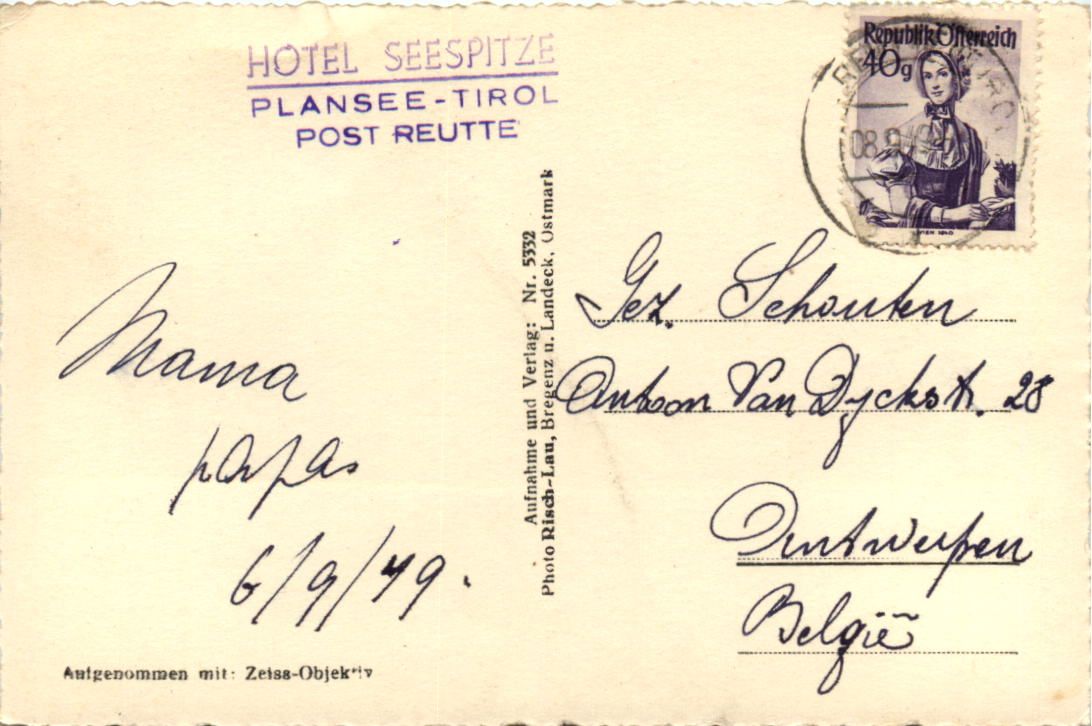 HOTEL SEESPITZE
PLANSEE-TIROL
POST REUTTE
Republik Österreich
40g
WIEN 1840
Mama
papa
6/9/49.
Aufgenommen mit: Zeiss-Objektiv
Aufnahme und Verlag: Nr. 5332
Photo Risch-Lau, Bregenz u. Landeck, Ostmark
Gez. Schouten
Antoon Van Dyckstr. 28
Antwerpen
België